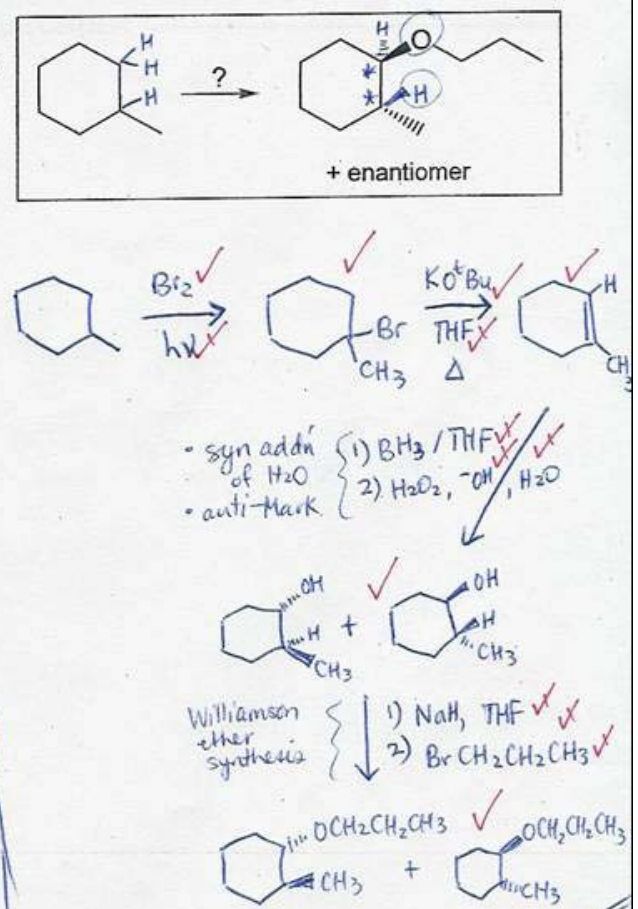 H
H
H
?
H
O
*
*
H
+ enantiomer
Br2
hν
Br
CH3
KOtBu
THF
Δ
H
CH3
• syn add'n
of H2O
• anti-Mark
1) BH3 / THF
2) H2O2, -OH, H2O
OH
H
CH3
+
OH
H
CH3
Williamson
ether
synthesis
1) NaH, THF
2) BrCH2CH2CH3
OCH2CH2CH3
CH3
+
OCH2CH2CH3
CH3